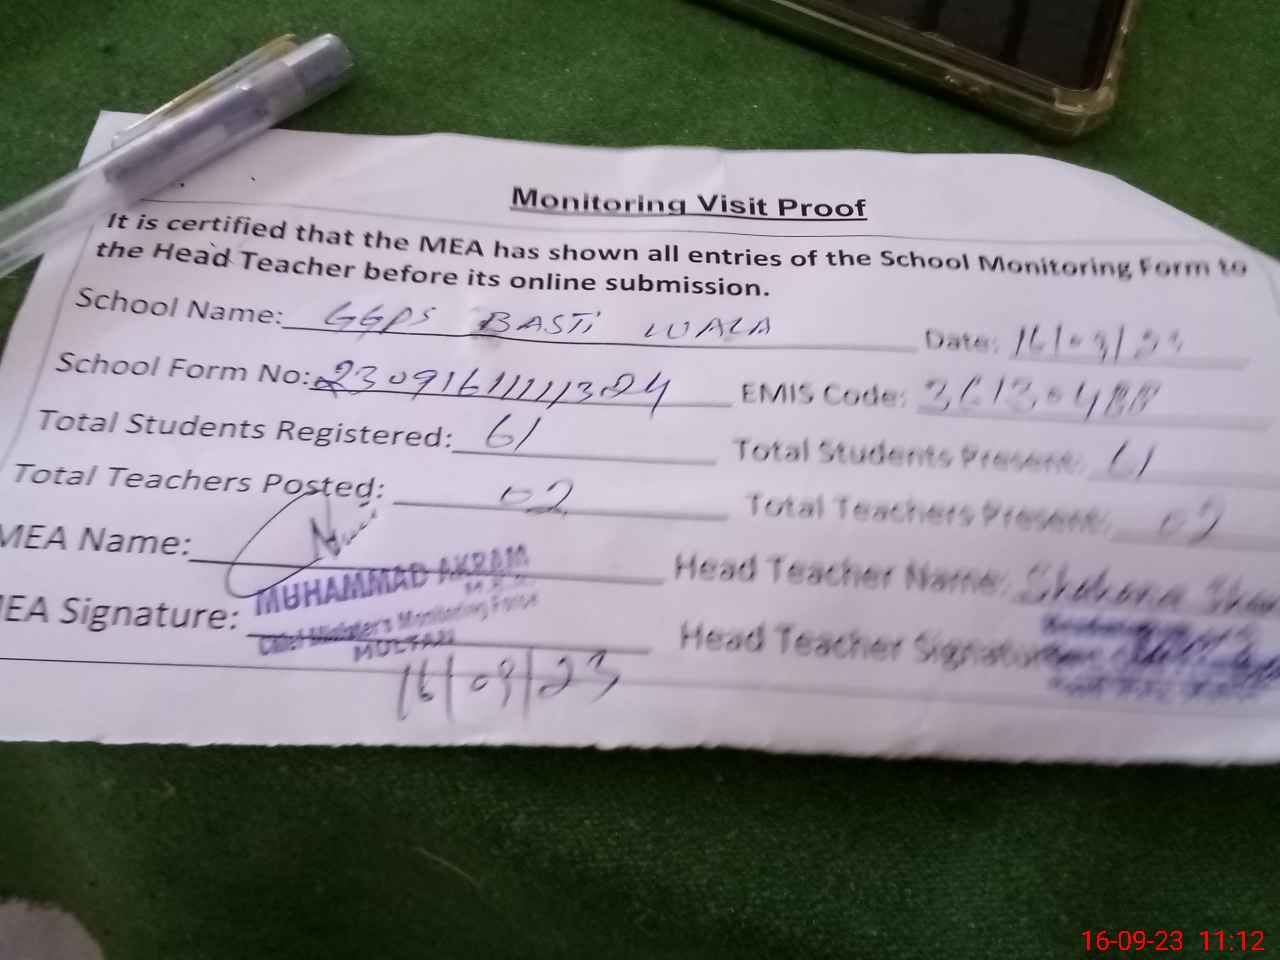 Monitoring Visit Proof
It is certified that the MEA has shown all entries of the School Monitoring Form to
the Head Teacher before its online submission.
School Name: GGPS BASTI WALA Date: 16/09/23
School Form No: EMIS Code:
Total Students Registered: 61 Total Students Present: 61
Total Teachers Posted: 02 Total Teachers Present: 02
MEA Name: Head Teacher Name:
MUHAMMAD AKRAM
MEA Signature: Head Teacher Signature
Chief Minister's Monitoring Force
MULTAN
16/09/23
16-09-23 11:12